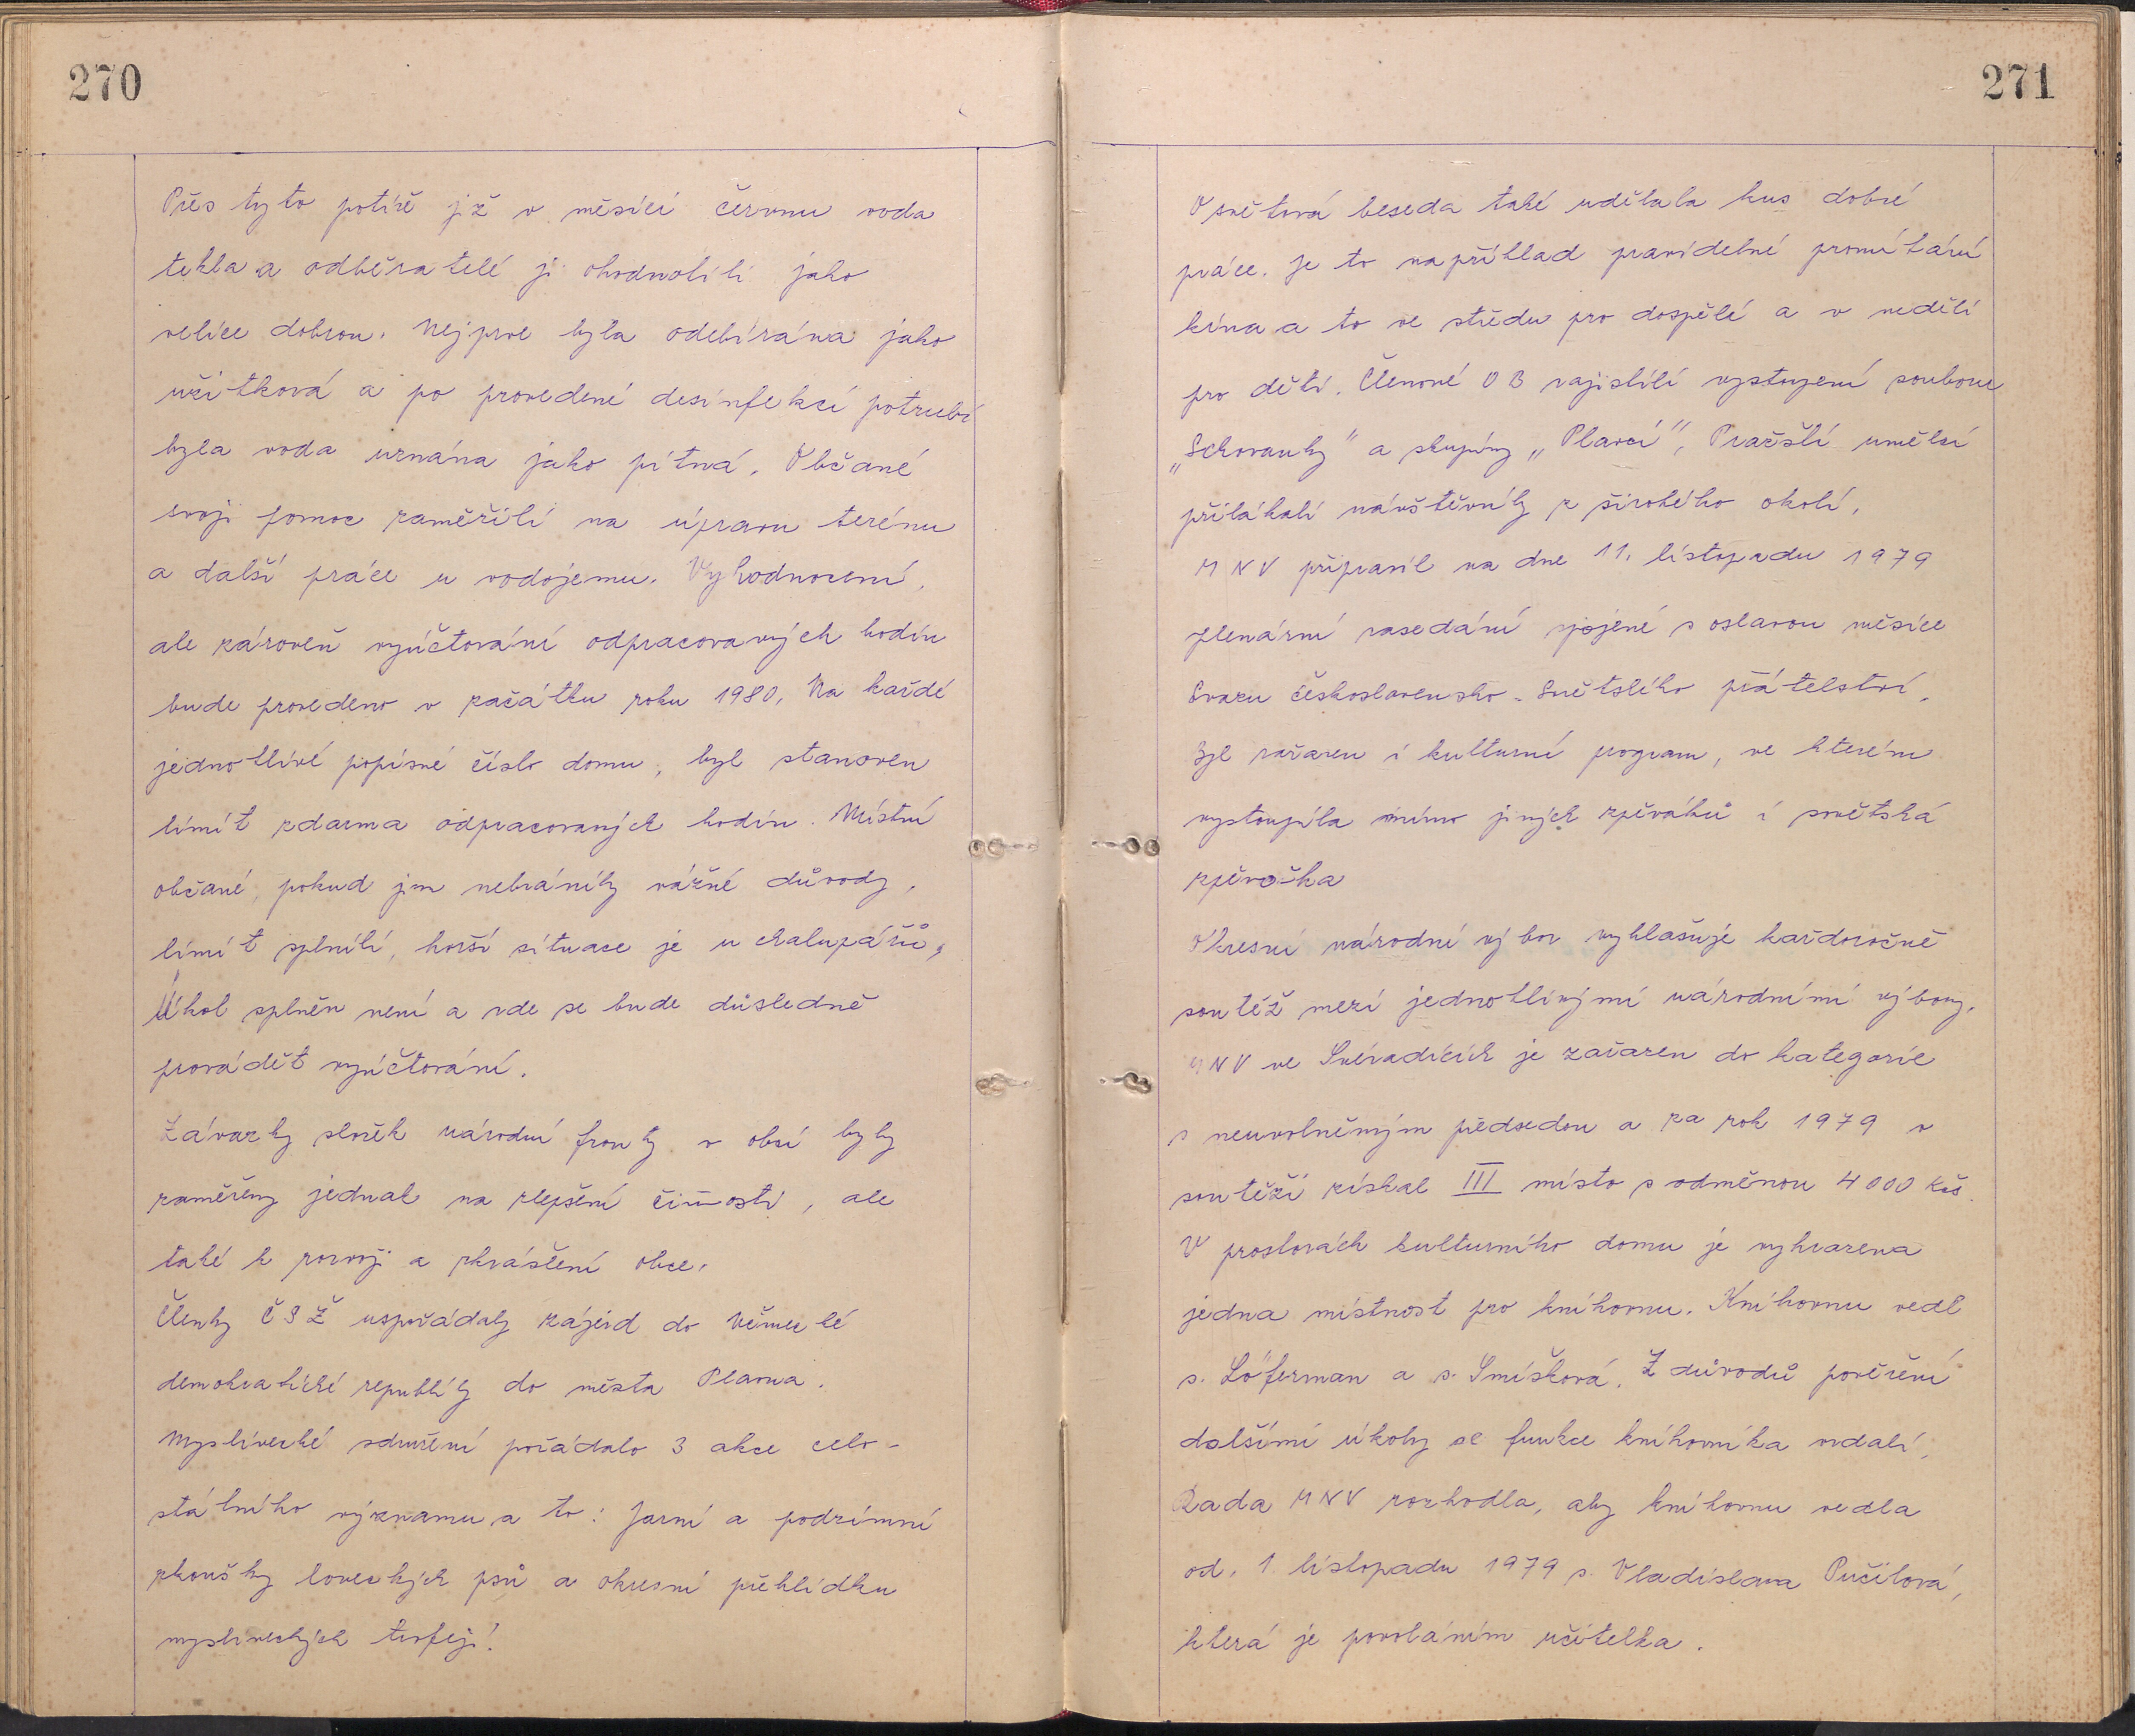 270
Přes tyto potíže již v měsíci červnu voda
tekla a odběratelé ji ohodnotili jako
velice dobrou. Nejprve byla odebírána jako
užitková a po provedené desinfekci potrubí
byla voda uznána jako pitná. Občané
svoji pomoc zaměřili na úpravu terénu
a další práce u vodojemu. Vyhodnocení,
ale zároveň vyúčtování odpracovaných hodin
bude provedeno v začátku roku 1980. Na každé
jednotlivé popisné číslo domu, byl stanoven
limit zdarma odpracovaných hodin. Místní
občané, pokud jim nebránily vážné důvody,
limit splnili, horší situace je u chalupářů,
Úkol splněn není a zde se bude důsledně
provádět vyúčtování.
Závazky složek národní fronty v obci byly
zaměřeny jednak na zlepšení činosti, ale
také k rozvoji a zkrášlení obce.
Členky ČSŽ uspořádaly zájezd do Německé
demokratické republiky do města Plavna.
Myslivecké sdružení pořádalo 3 akce celo-
státního významu a to: Jarní a podzimní
zkoušky loveckých psů a okresní přehlídku
mysliveckých trofejí.
271
Osvětová beseda také udělala kus dobré
práce. Je to například pravidelné promítání
kina a to ve středu pro dospělé a v neděli
pro děti. Členové OB zajistili vystoupení souboru
„Schovanky" a skupiny „Plavci", Pražští umělci
přilákali návštěvníky z širokého okolí.
MNV připravil na dne 11. listopadu 1979
plenární zasedání spojené s oslavou měsíce
Svazu československo-Sovětského přátelství.
Byl zařazen i kulturní program, ve kterém
vystoupila mimo jiných zpěváků i sovětská
zpěvačka
Okresní národní výbor vyhlašuje každoročně
soutěž mezi jednotlivými národními výbory.
MNV ve Sviradicích je zařazen do kategorie
s neuvolněným předsedou a za rok 1979 v
soutěži získal III místo s odměnou 4000 Kčs.
V prostorách kulturního domu je vyhrazena
jedna místnost pro knihovnu. Knihovnu vedl
s. Löferman a s. Smíšková. Z důvodů pověření
dalšími úkoly se funkce knihovníka vzdali.
Rada MNV rozhodla, aby knihovnu vedla
od. 1. listopadu 1979 s. Vladislava Pučilová,
která je povoláním učitelka.